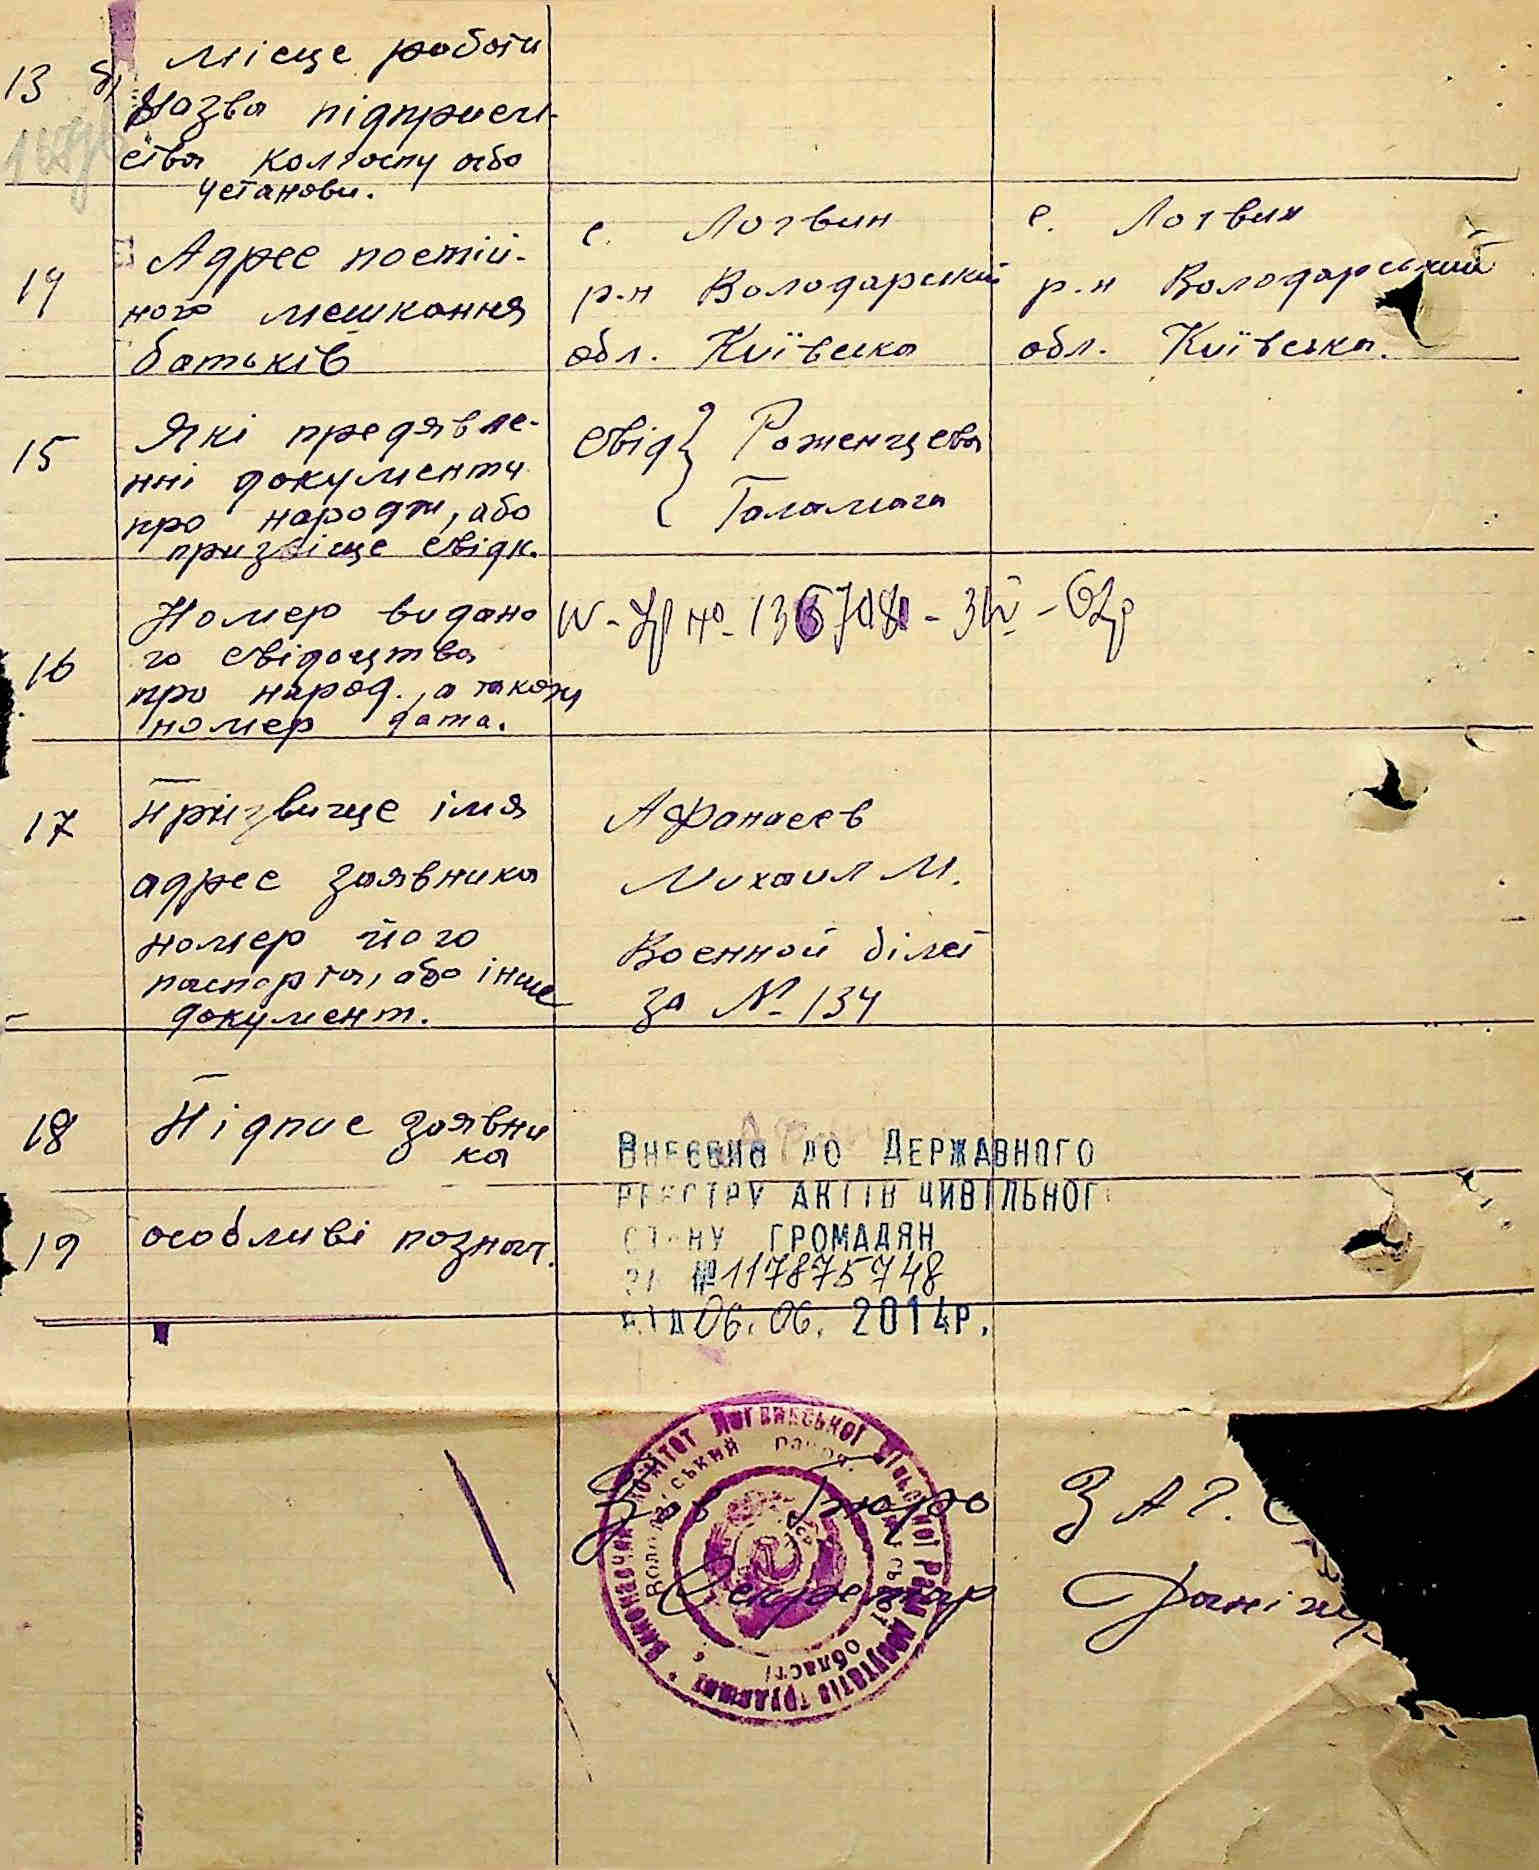 13 б) Місце роботи
Назва підприєм-
ства колгоспу або
установи.
14 Адрес постій-
ного мешкання
батьків
с. Логвин
р-н Володарський
обл. Київська
с. Логвин
р-н Володарський
обл. Київська.
15 Які предявле-
нні документи
про народж, або
призвіще свідк.
Свід { Роженцева
Галамага
16 Номер видано
го свідоцтва
про народ., а також
номер дата.
17 Призвище імя
адрес заявника
номер його
паспорта, або інше
документ.
Афанасєв
Михаил М.
Военной білет
за № 134
18 Підпис заявни
ка
19 особливі познач.
Внесено до Державного
реєстру актів цивільног
стану громадян
за №117875748
від 06.06.2014р.
Виконавчий комітет Логвинської сільської Ради депутатів трудящих
області
Зав бюро ЗАГС
Секретар